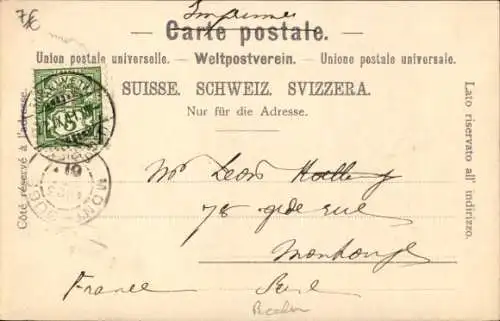 7€
Imprimés
Carte postale.
Union postale universelle. – Weltpostverein. – Unione postale universale.
SUISSE. SCHWEIZ. SVIZZERA.
Nur für die Adresse.
Côté réservé à l'adresse.
Lato riservato all' indirizzo.
HELVETIA
5
Mr Leon
78 gde rue
Montrouge
France Seine